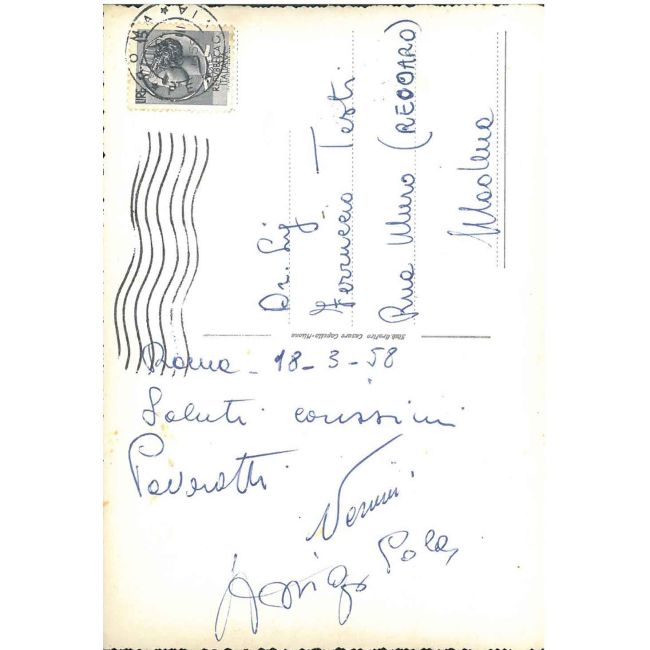 ROMA
REPUBBLICA
ITALIANA
Dr. Sig
Ferruccio Testi
Rua Muro (REDDARO)
Modena
Stab. Grafico Cesare Capello-Milano
Roma - 18-3-58
Saluti carissimi
Pavarotti
Arrigo Pola